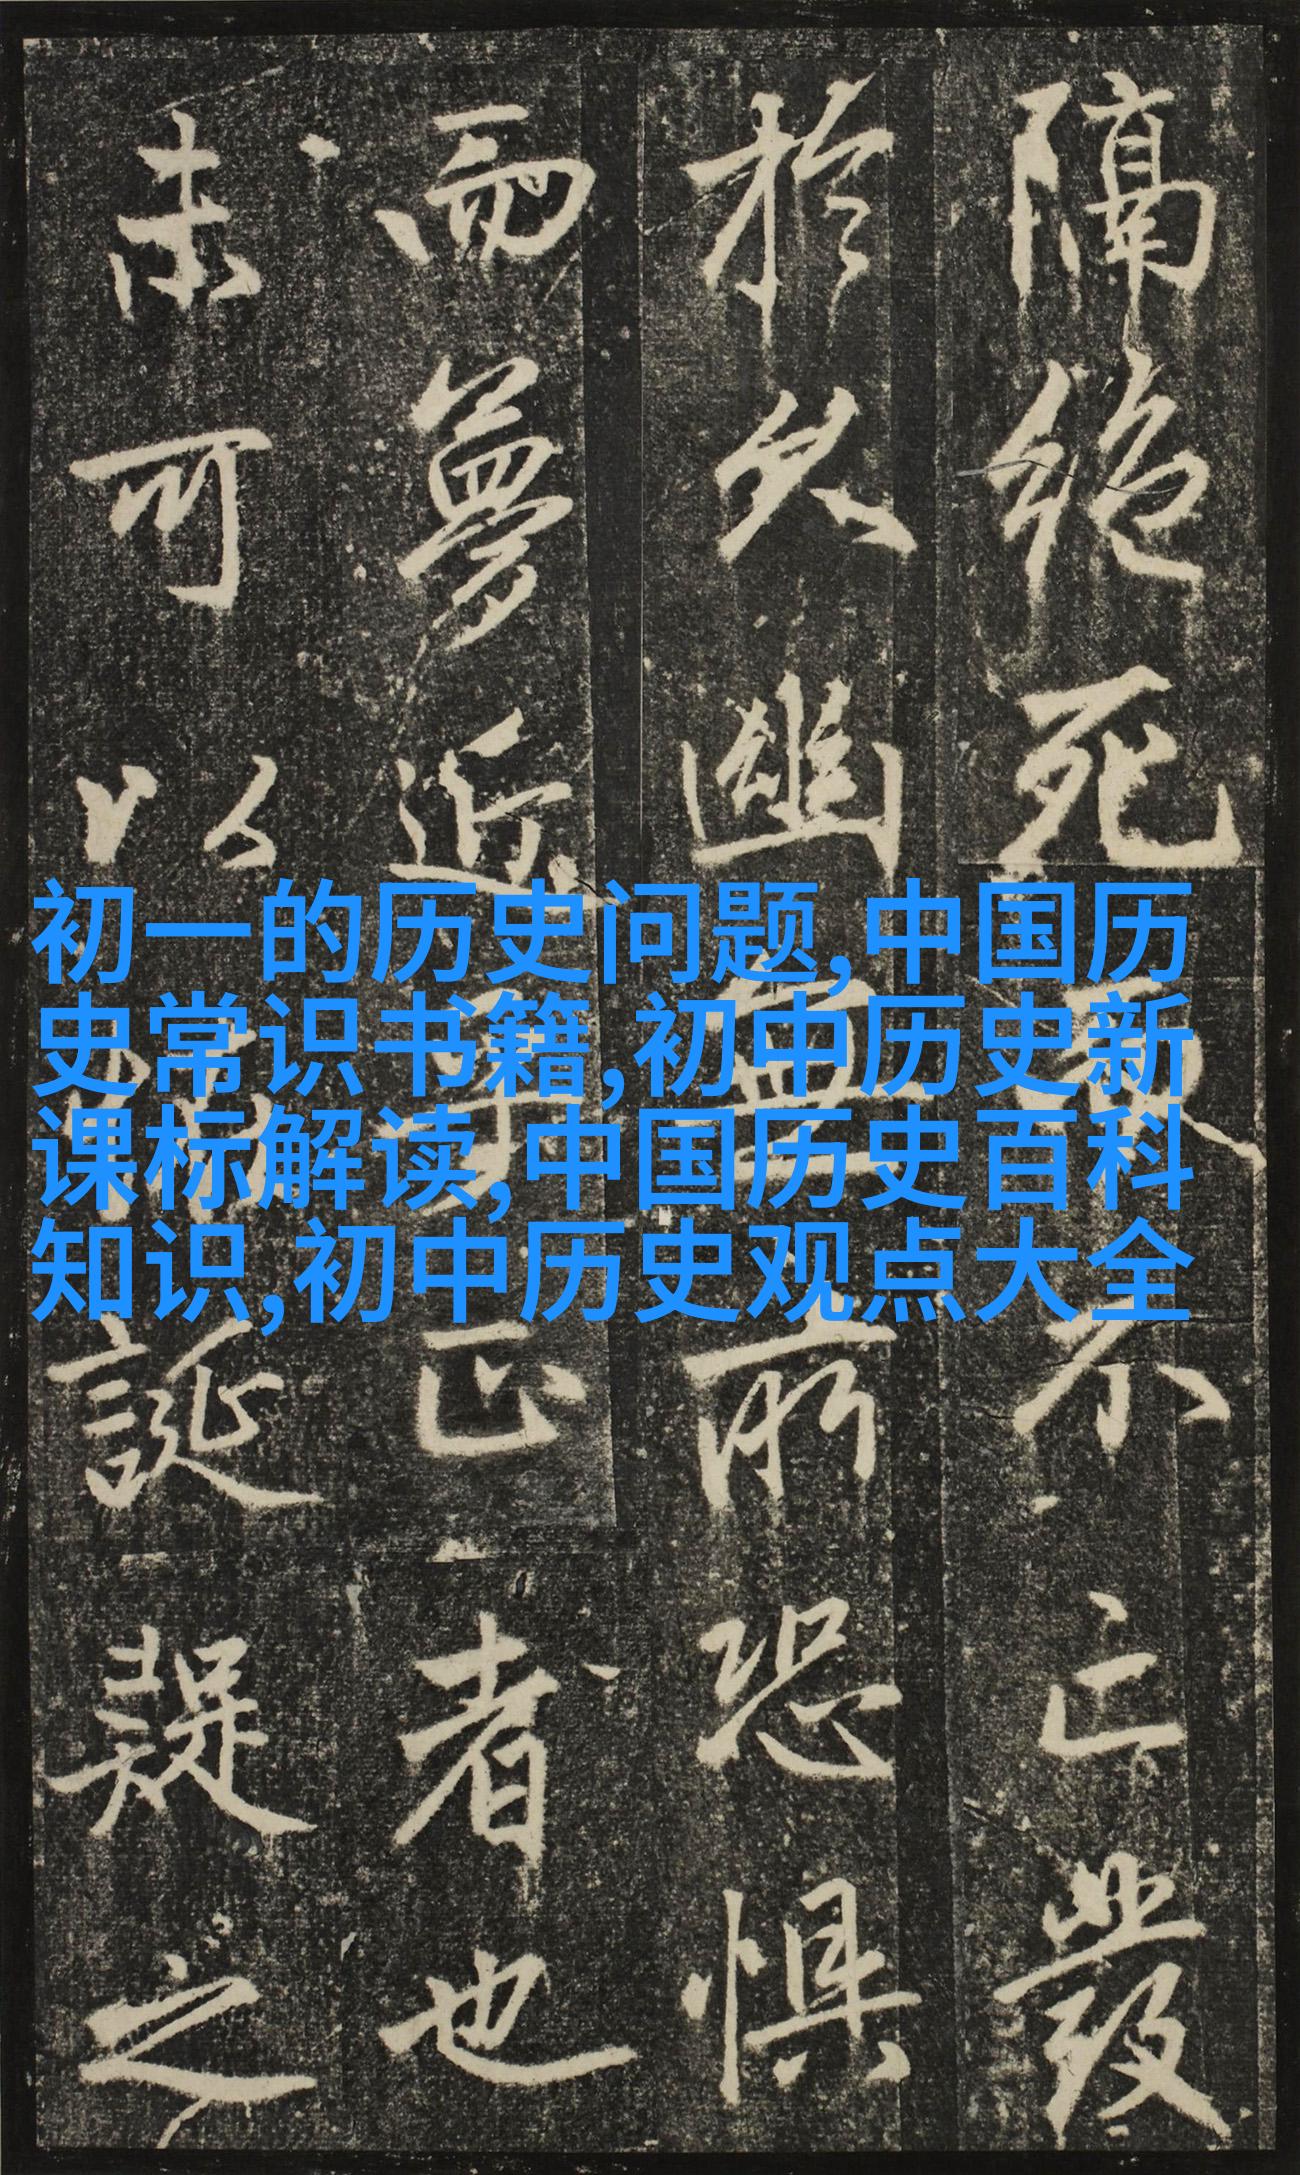 隔絕死不亡發
於久幽蓋所恐懼
而夢近事正者也
未可以誕疑之
初一的历史问题,中国历
史常识书籍,初中历史新
课标解读,中国历史百科
知识,初中历史观点大全